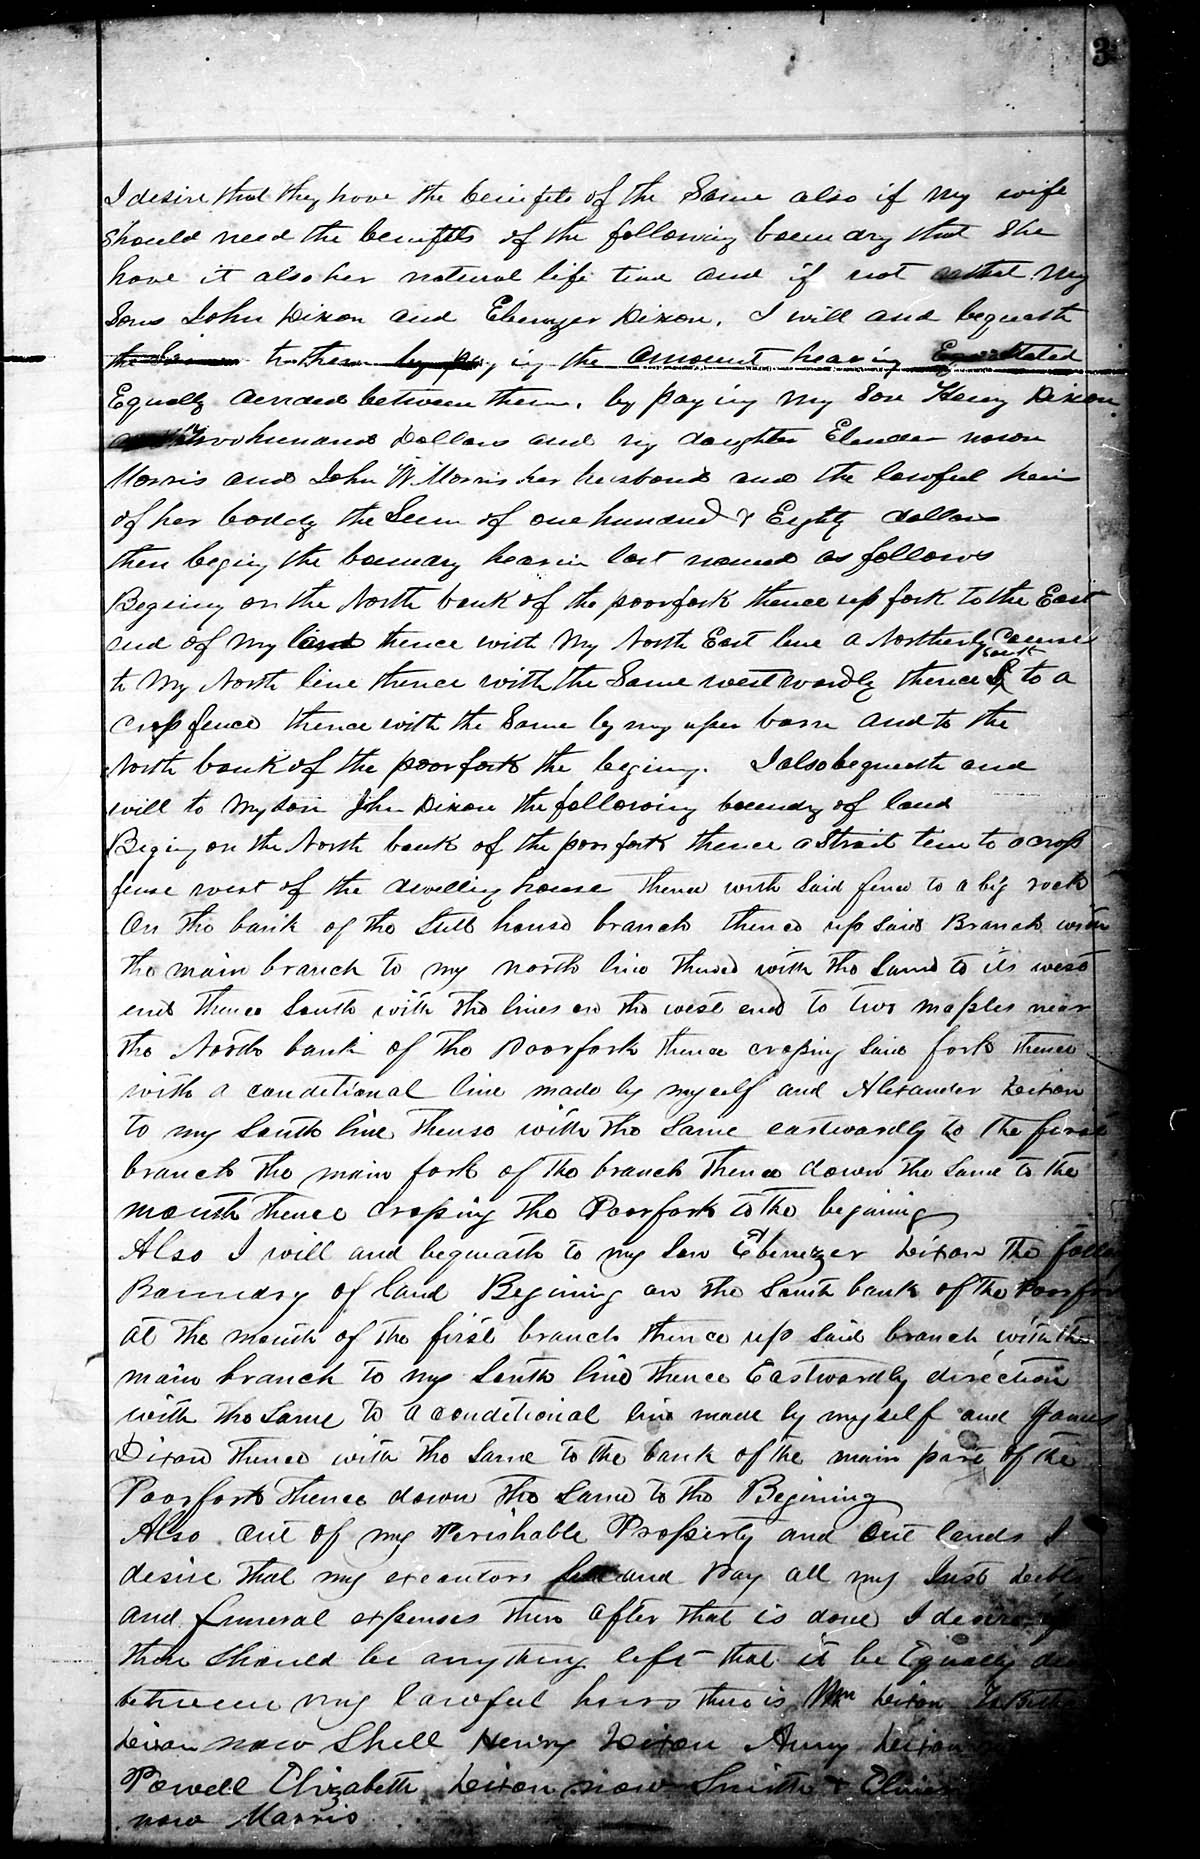 3
I desire that they have the benifits of the Same also if my wife
should need the benifits of the following boundry that She
have it also her natural life time and if not that My
Sons John Dixon and Ebenezer Dixon, I will and bequeath
to them by paying the amount hearing stated
Equally between them, by paying my Son Henry Dixon
Two hundred Dollars and my daughter now
Morris and John W Morris her husband and the lawful heirs
of her boddy the Sum of one hundred & Eighty dollars
then begin the boundry hearin last named as follows
Begining on the North bank of the poorfork thence up fork to the East
end of my land thence with My North East line a Northerly Course
to My North line thence with the Same westwardly thence to a
crop fence thence with the Same by my uper barn and to the
North bank of the poorfork the begining. I also bequeath and
will to My Son John Dixon the following boundry of land
Begining on the North bank of the poorfork thence a Strait line to a crop
fence west of the dwelling house thence with Said fence to a big rock
On the bank of the Still house branch thence up Said Branch with
the main branch to my north line thence with the Same to its west
end thence South with the lines on the west end to two maples near
the North bank of the Poorfork thence croping Said fork thence
with a conditional line made by myself and Alexander Dixon
to my South line thense with the Same eastwardly to the first
branch the main fork of the branch thence down the Same to the
mouth thence croping the Poorfork to the begining
Also I will and bequeath to my Son Ebenezer Dixon the
Boundry of land Begining on the South bank of the
at the mouth of the first branch thence up Said branch with the
main branch to my South line thence Eastwardly direction
with the Same to a conditional line made by myself and James
Dixon thence with the Same to the bank of the main part of the
Poorfork thence down the Same to the Begining
Also out of my Perishable Property and out lands I
desire that my executors and Pay all my Just Debts
and funeral expenses then after that is done I desire if
there should be anything left that it be Equally
between my lawful heirs there is Wm Dixon
Dixon now Shell Henry Dixon Anny Dixon
Powell Elizabeth Dixon now Smith &
now Marris